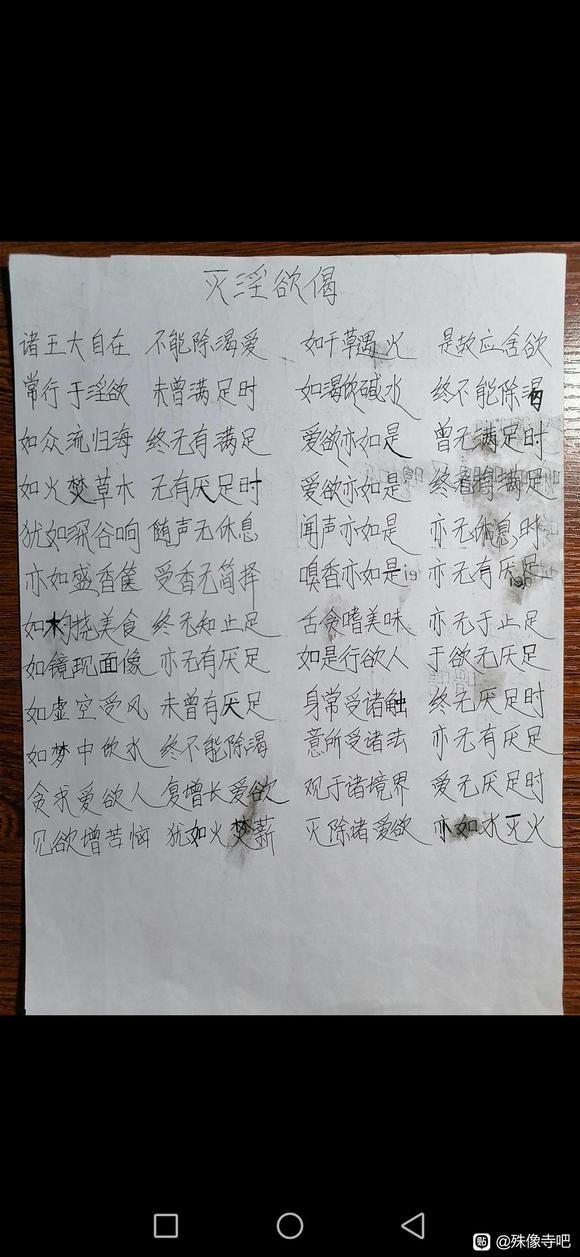 灭淫欲偈
诸王大自在 不能除渴爱 如干草遇火 是故应舍欲
常行于淫欲 未曾满足时 如渴饮碱水 终不能除渴
如众流归海 终无有满足 爱欲亦如是 曾无满足时
如火焚草木 无有厌足时 爱欲亦如是 终者有满足
犹如深谷响 随声无休息 闻声亦如是 亦无休息时
亦如盛香箧 受香无简择 嗅香亦如是 亦无有厌足
如杓挠美食 终无知止足 舌贪嗜美味 亦无于止足
如镜现面像 亦无有厌足 如是行欲人 于欲无厌足
如虚空受风 未曾有厌足 身常受诸触 终无厌足时
如梦中饮水 终不能除渴 意所受诸法 亦无有厌足
贪求爱欲人 复增长爱欲 观于诸境界 爱无厌足时
见欲增苦恼 犹如火焚薪 灭除诸爱欲 亦如水灭火
贴 @殊像寺吧